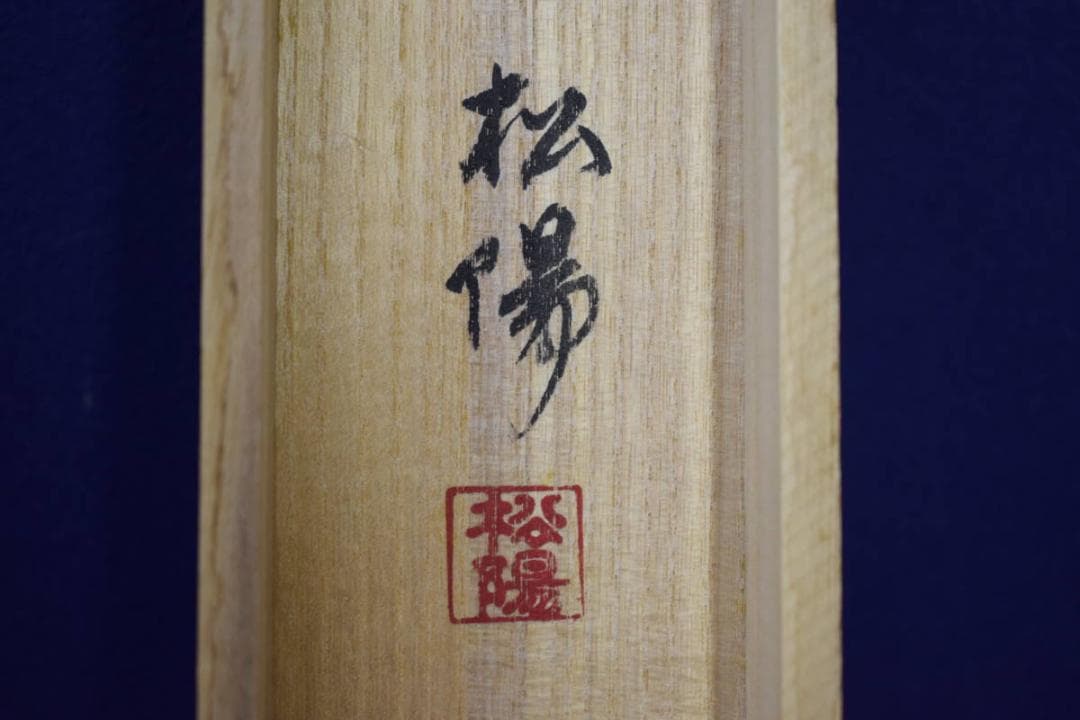 松陽
松陽